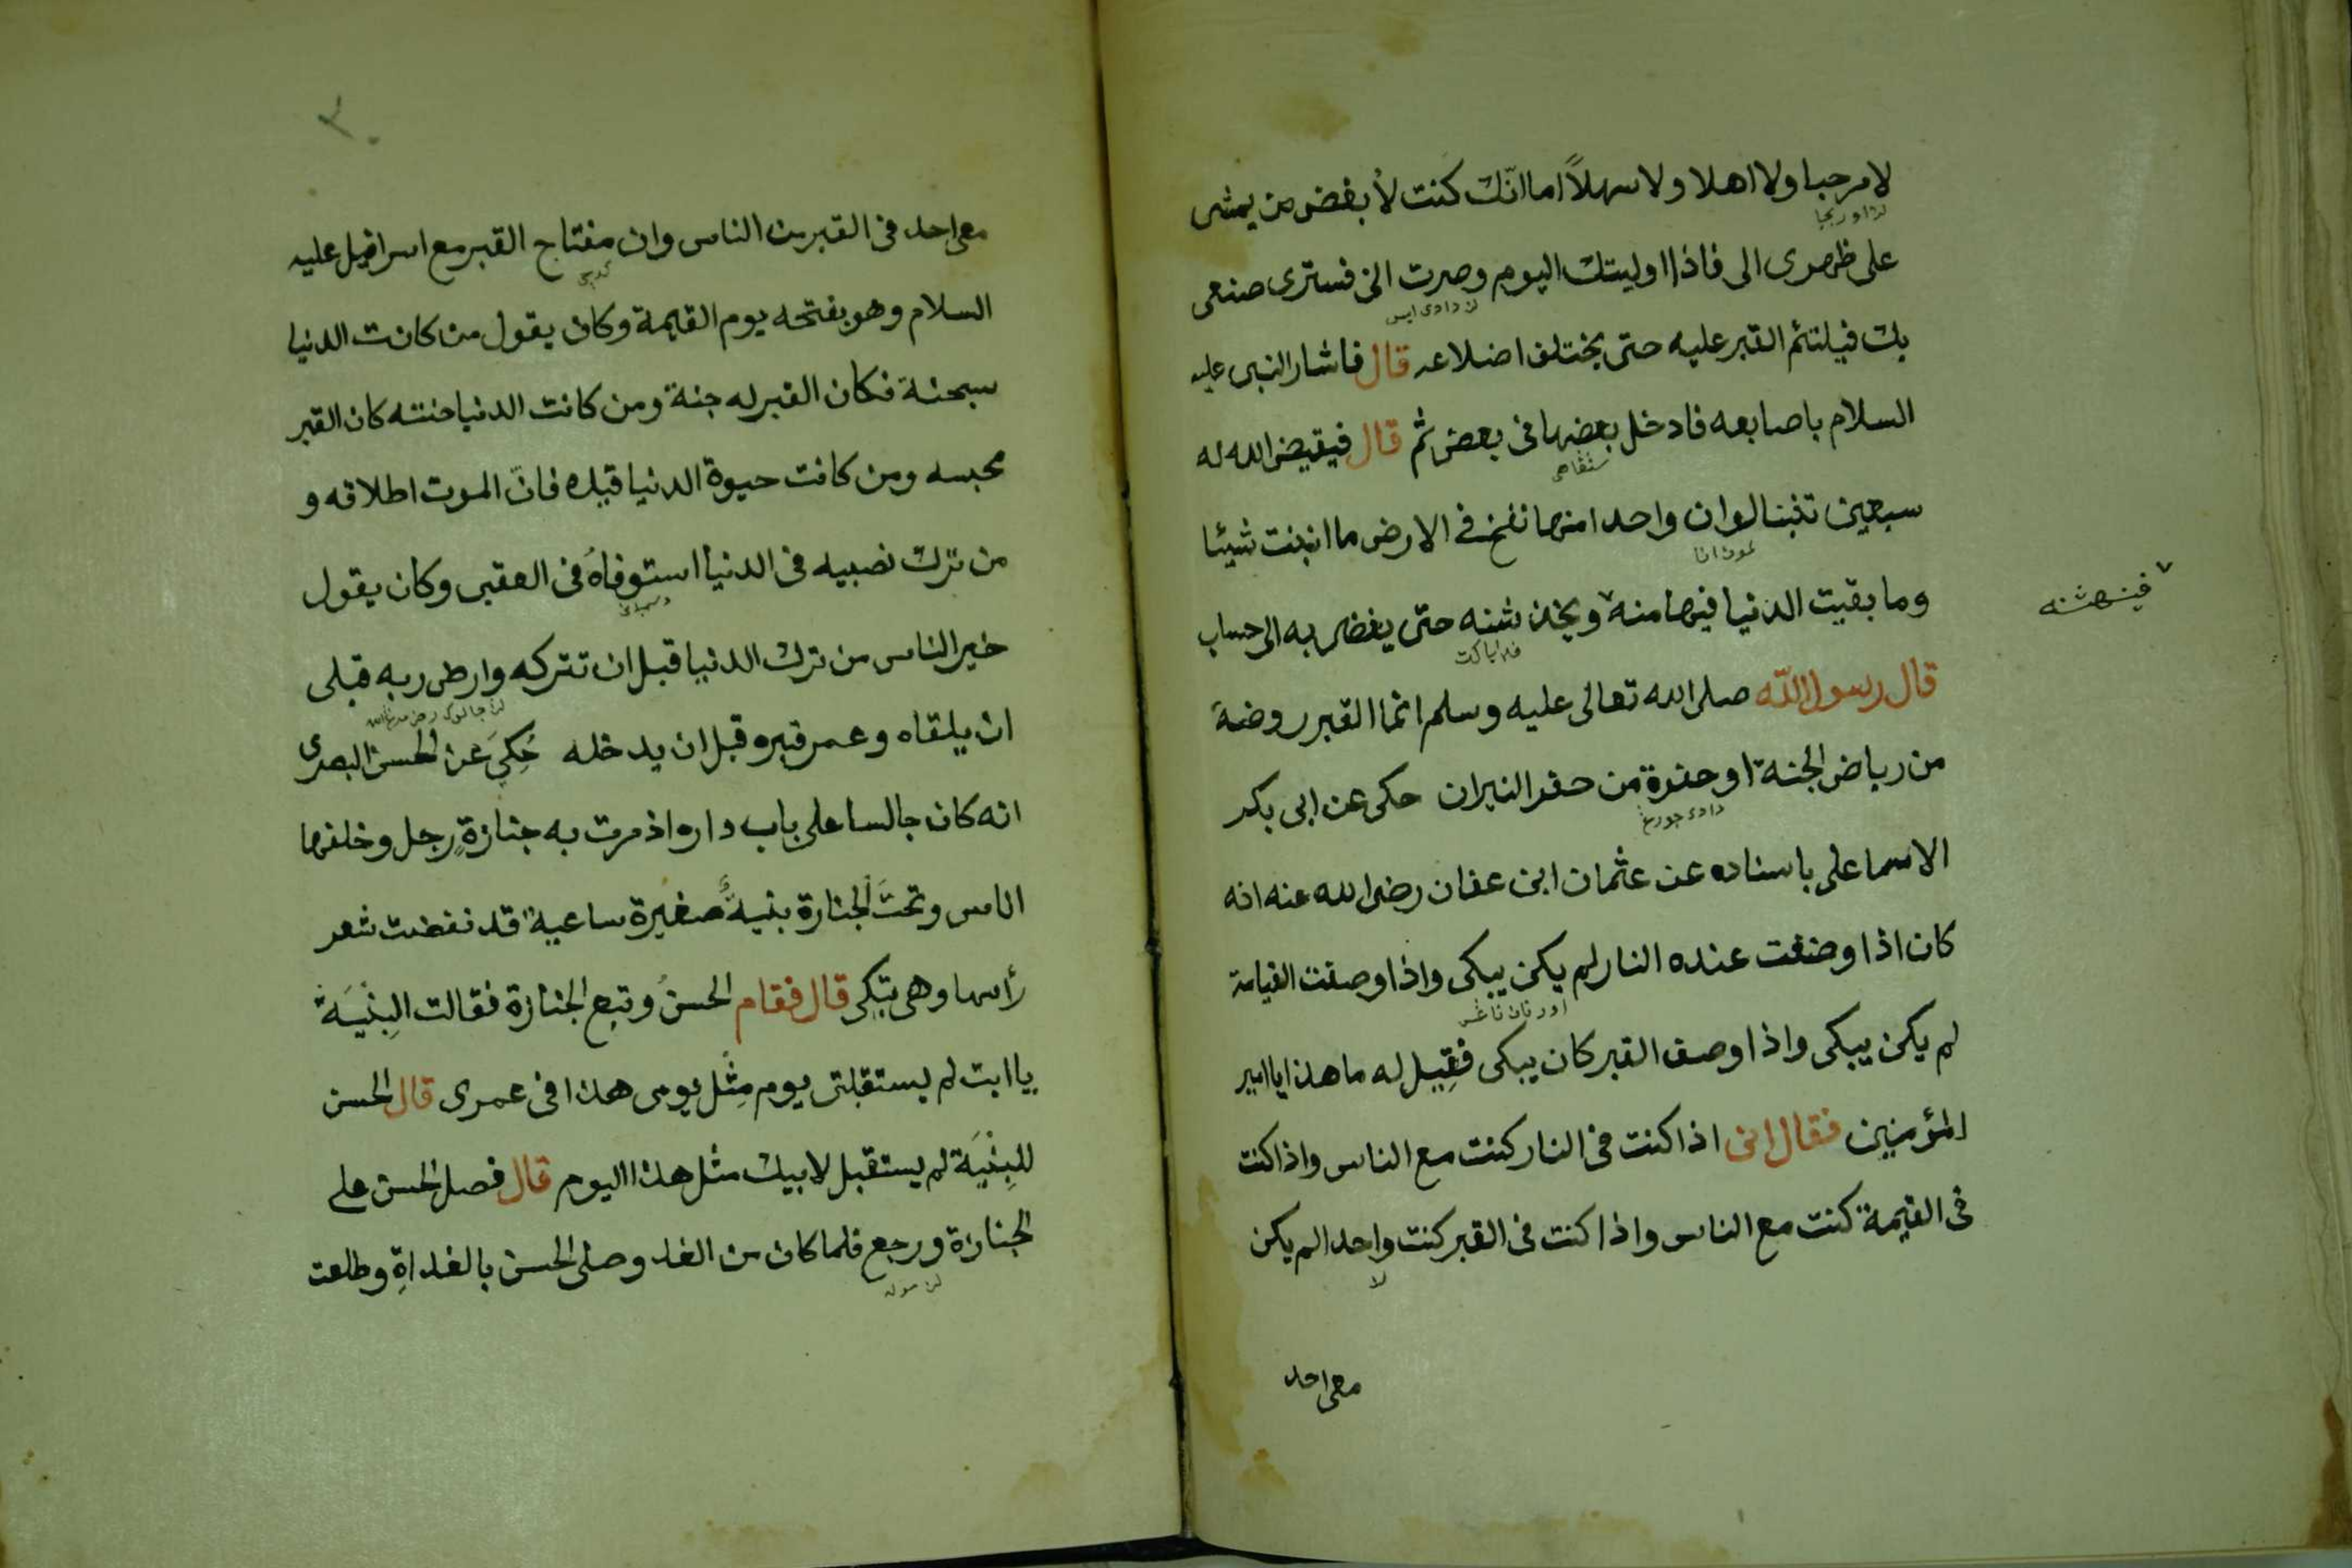 لامرحبا ولا اهلا ولا سهلاً اما انّك كنت لأبغض من يمشى
على ظهرى الى فاذا اوليتك اليوم وصرت الىّ فسترى صنعى
بك فيلتئم القبر عليه حتى يختلف اضلاعه قال فاشار النبى عليه
السلام باصابعه فادخل بعضها فى بعض ثم قال فيقيض الله له
سبعين تنينا لو ان واحدا منها نفخ فى الارض ما انبتت شيئا
وما بقيت الدنيا فينهامنه ويخدشنه حتى يفضى به الى حساب
فينهشنه
قال رسول الله صلى الله تعالى عليه وسلم انما القبر روضة
من رياض الجنة او حفرة من حفر النيران حكى عن ابى بكر
الاسماعلى باسناده عن عثمان ابن عفان رضى الله عنه انه
كان اذا وصفت عنده النار لم يكن يبكى واذا وصفت القيامة
لم يكن يبكى واذا وصف القبر كان يبكى فقِيل له ما هذا يا امير
المؤمنين فقال انى اذا كنت فى النار كنت مع الناس واذا كنت
فى القيمة كنت مع الناس واذا كنت فى القبر كنت واحدا لم يكن
معى احد
معى احد فى القبر من الناس وان مفتاح القبر مع اسرافيل عليه
السلام وهو يفتحه يوم القيمة وكان يقول من كانت الدنيا
سجنة فكان القبر له جنة ومن كانت الدنيا جنته كان القبر
محبسه ومن كانت حيوة الدنيا قيده فانّ الموت اطلاقه و
من ترك نصيبه فى الدنيا استوفاهُ فى العقبى وكان يقول
خير الناس من ترك الدنيا قبل ان تتركه وارضى ربه قبلى
ان يلقاه وعمر قبره قبل ان يدخله حُكِيَ عن الحسن البصرى
انه كان جالسا على باب داره اذ مرت به جنازةِ رجل وخلفها
الناس وتحتَ الجنازة بنيةٌ صغيرة ساعية قد نفضت شعر
رأسها وهى تبكى قال فقام الحسنُ وتبع الجنازة فقالت البِنْيَة
يا ابت لم يستقبلنى يوم مِثل يومى هذا فى عمرى قال الحسن
للبِنْيَة لم يستقبل لابيك مثل هذا اليوم قال فصلى الحسن على
الجنازة ورجع فلما كان من الغد وصلى الحسن بالغداةِ وطلعت